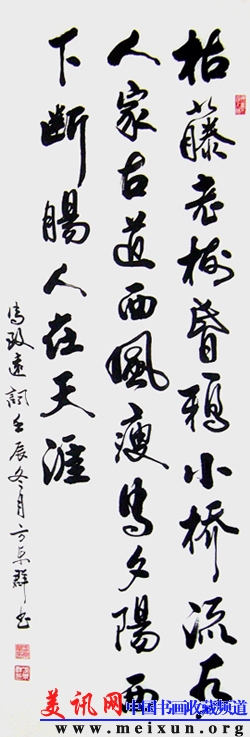 枯藤老树昏鴉小橋流水
人家古道西風瘦馬夕陽西
下断腸人在天涯
馬致遠詞壬辰冬月方群书
美讯网 中国书画收藏频道
www.meixun.org